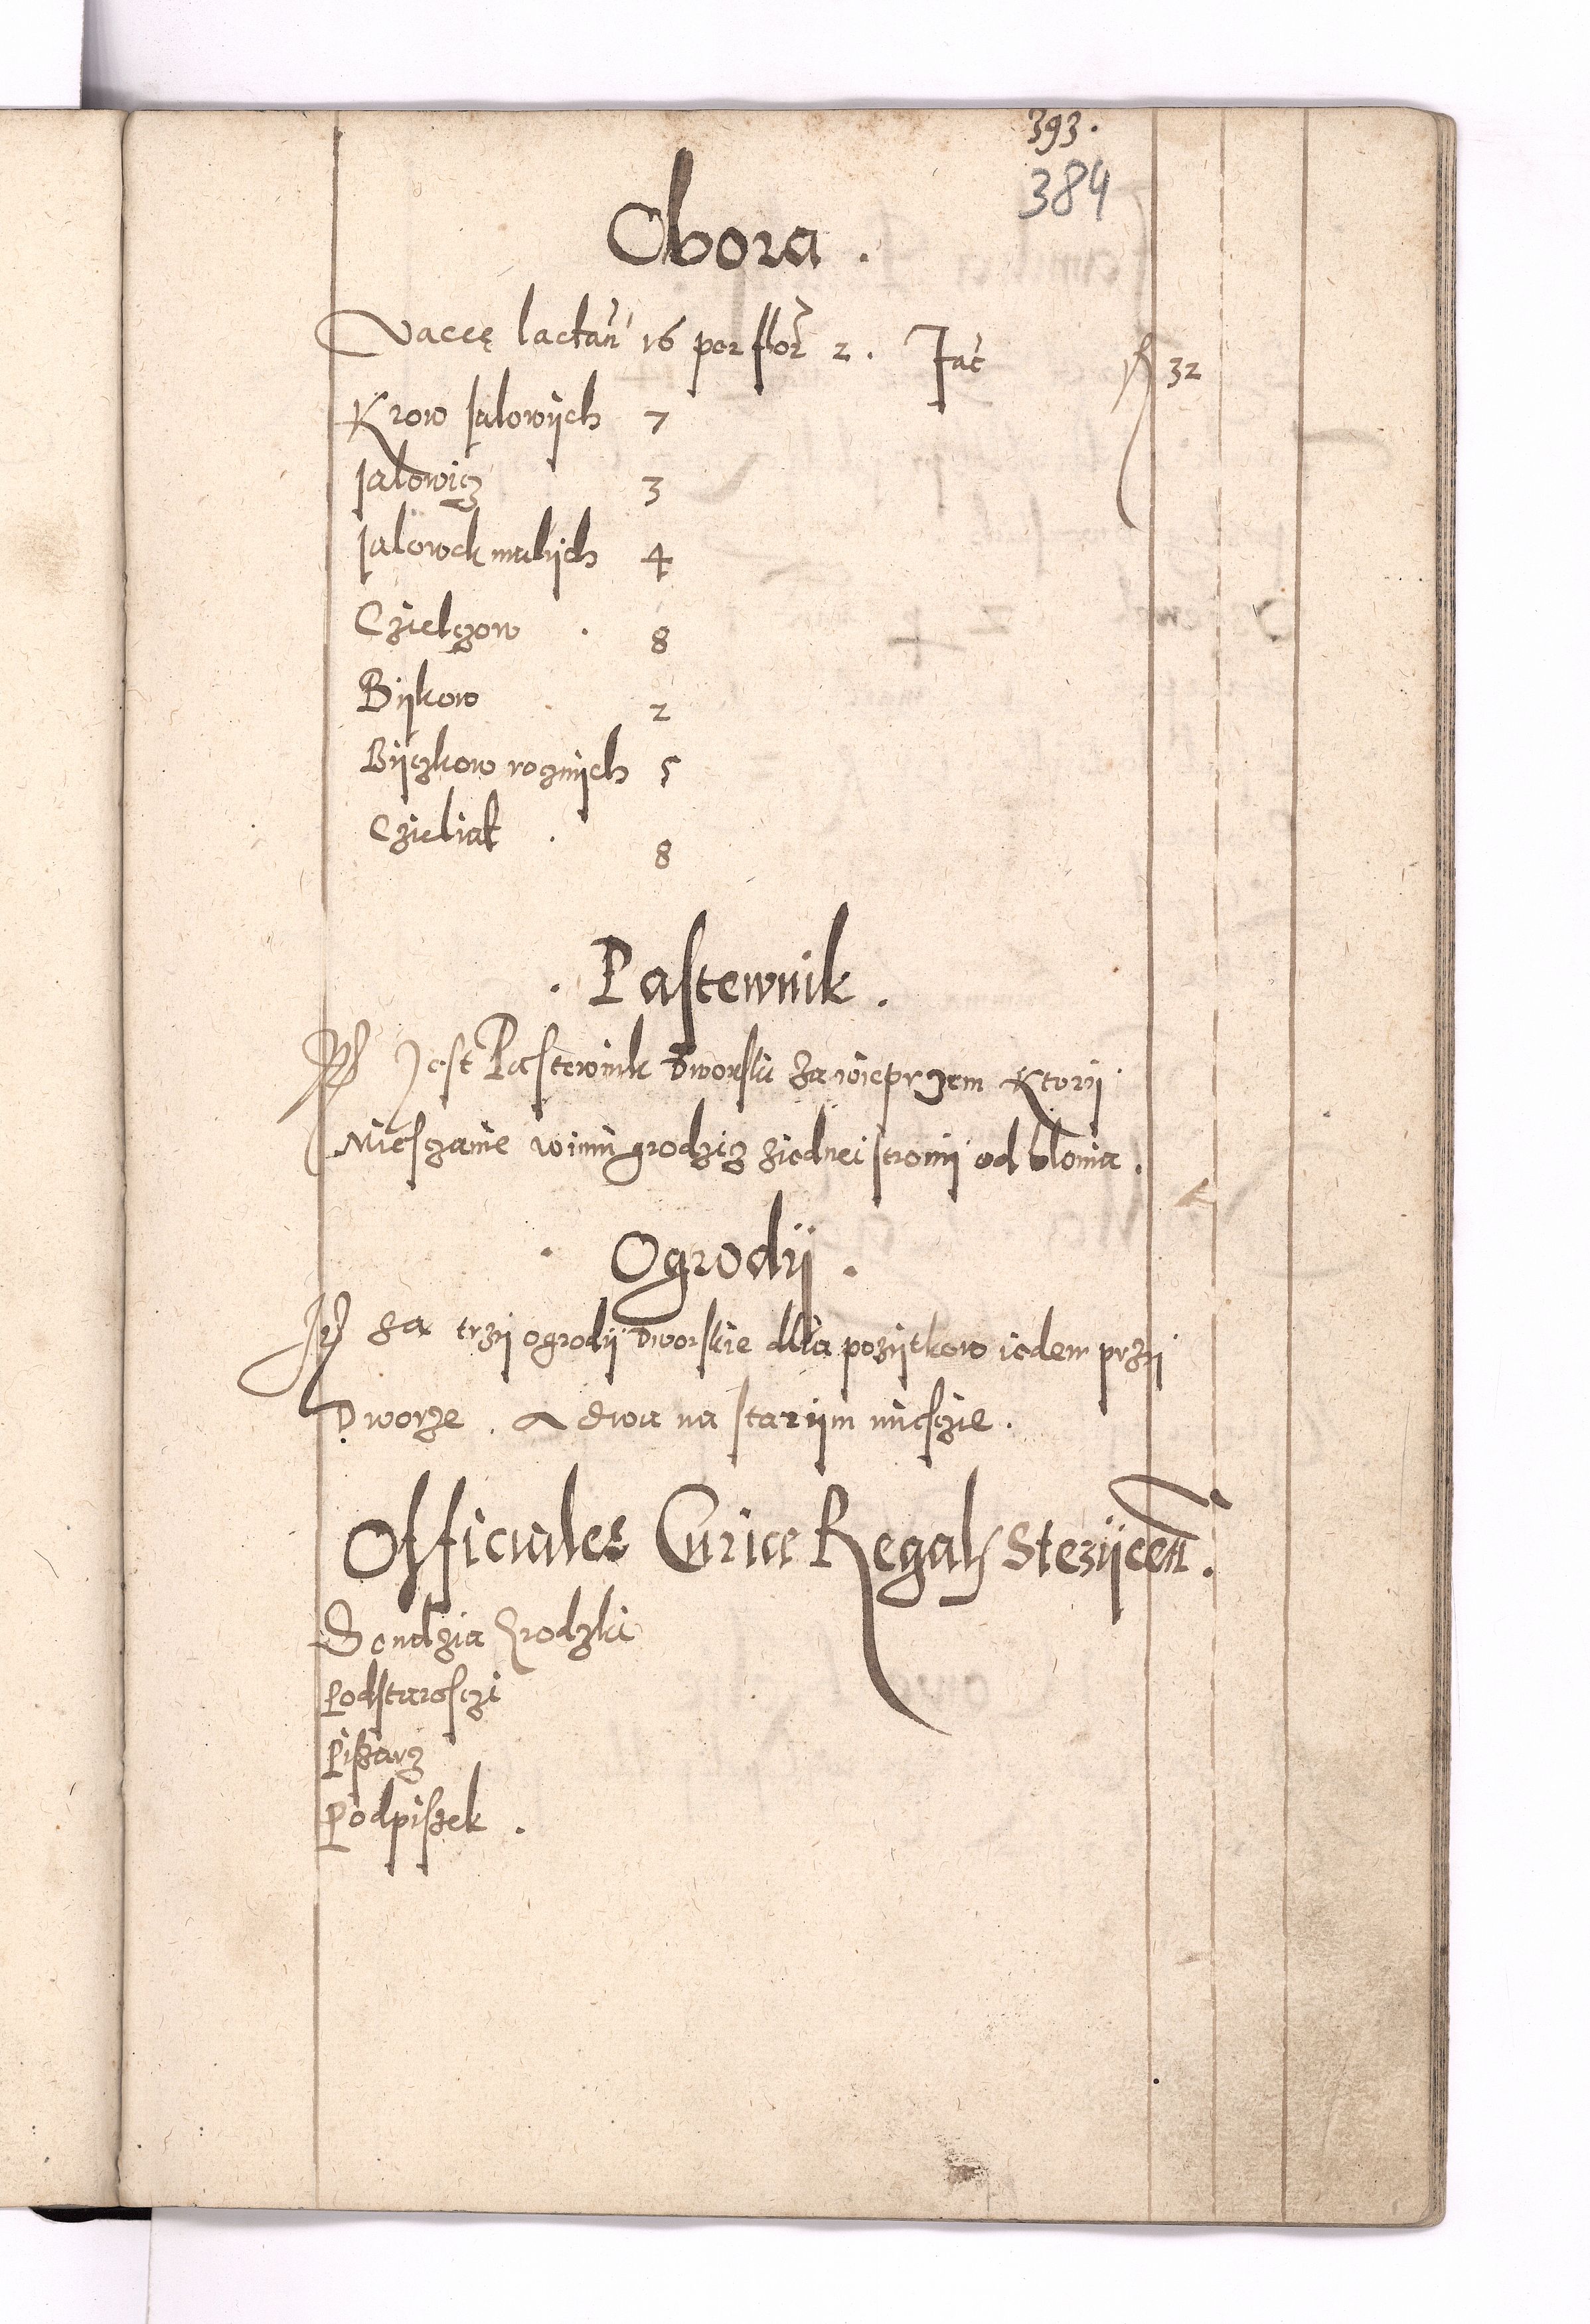 393.
384
Obora .
Vaccę lactan̄ 16 per flor 2 . Fac̄ fl 32
Krow Jalowÿch 7
Jalowicz 3
Jalowek malÿch 4
Czielczow . 8
Bÿkow 2
Bÿczkow rocznÿch 5
Czieliat . 8
. Pastewnik .
Jest Pastewnik Dworski za wieprzem Ktorÿ
Miesczanie winni grodzicz ziednei stronÿ od blonia .
. Ogrodÿ .
Jt Sa trzÿ ogrodÿ Dworskie dlia pozÿtkow ieden przÿ
Dworze . A dwa na starÿm miesczie .
Officiales Curiae Regals Stezÿcen̄ .
Sendzia Grodzki
Podstarosczi
Piszarz
Podpiszek .